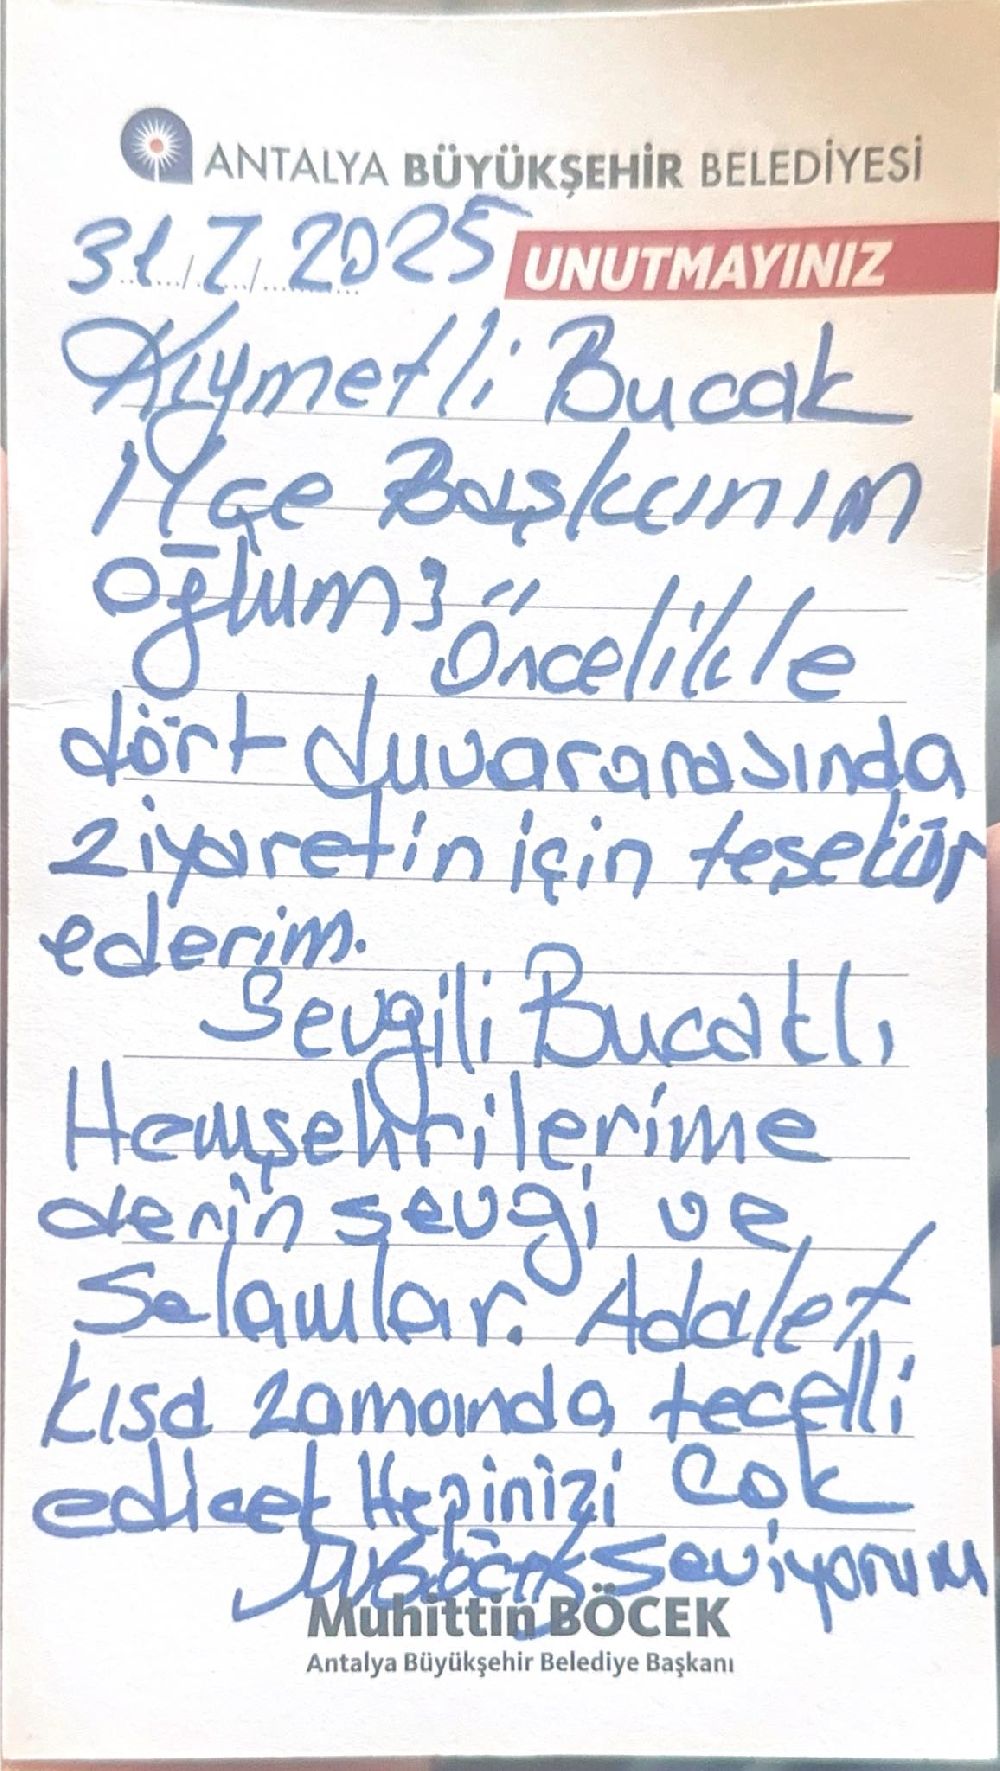 ANTALYA BÜYÜKŞEHİR BELEDİYESİ
31/7/2025 UNUTMAYINIZ
Kıymetli Bucak
İlçe Başkanım
Oğlum;
Öncelikle
dört duvar arasında
ziyaretin için teşekür
ederim.
Sevgili Bucaklı
Hemşehrilerime
derin sevgi ve
Selamlar. Adalet
kısa zamanda tecelli
edicek Hepinizi Çok
Seviyorum
Muhittin BÖCEK
Antalya Büyükşehir Belediye Başkanı